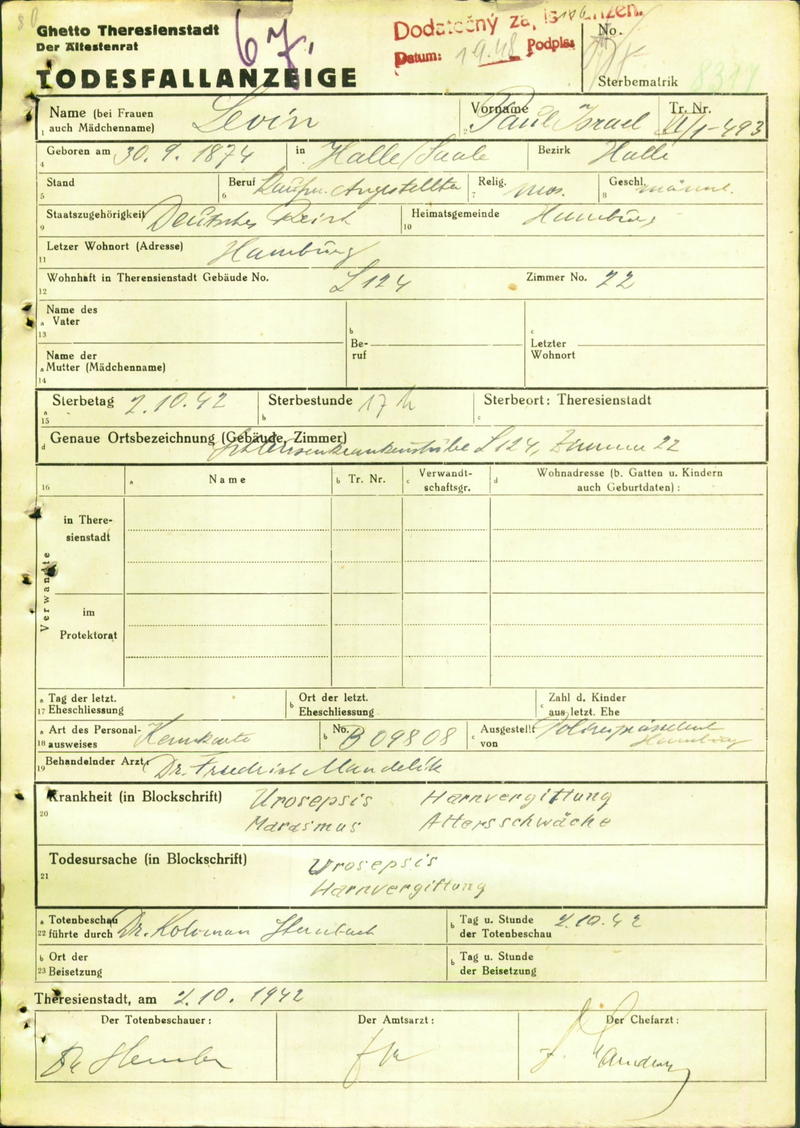 Ghetto Theresienstadt
Der Ältestenrat
TODESFALLANZEIGE
67.
Dodatečný
Datum: 1 9.48 Podpis:
No.
Sterbematrik
8314
1 Name (bei Frauen auch Mädchennamen) Levin
2 Vorname Paul Israel
Tr. Nr. VI/1-493
4 Geboren am 30. 9. 1874 in Halle/Saale Bezirk Halle
5 Stand 6 Beruf Kaufm. Angestellter 7 Relig. mos. 8 Geschl. männl.
9 Staatszugehörigkeit Deutsches Reich 10 Heimatsgemeinde Hamburg
11 Letzer Wohnort (Adresse) Hamburg
12 Wohnhaft in Therensienstadt Gebäude No. L 124 Zimmer No. 22
13 a Name des Vater
14 a Name der Mutter (Mädchenname)
b Beruf
c Letzter Wohnort
15 a Sterbetag 2.10.42 b Sterbestunde 17 h c Sterbeort: Theresienstadt
d Genaue Ortsbezeichnung (Gebäude, Zimmer) L 124, Zimmer 22
16 a Name b Tr. Nr. c Verwandtschaftsgr. d Wohnadresse (b. Gatten u. Kindern auch Geburtdaten):
Verwandte
in Theresienstadt
im Protektorat
17 a Tag der letzt. Eheschliessung b Ort der letzt. Eheschliessung c Zahl d. Kinder aus letzt. Ehe
18 a Art des Personalausweises Kennkarte b No. B 09808 c Ausgestellt von Polizeipräsident Hamburg
19 Behandelnder Arzt: Dr. Friedrich Mandelik
20 Krankheit (in Blockschrift) Urosepsis Harnvergiftung
Marasmus Altersschwäche
21 Todesursache (in Blockschrift) Urosepsis
Harnvergiftung
22 a Totenbeschau führte durch Dr. Koloman Sternbach b Tag u. Stunde der Totenbeschau 2.10.42
23 b Ort der Beisetzung b Tag u. Stunde der Beisetzung
Theresienstadt, am 2.10.1942
Der Totenbeschauer: Der Amtsarzt: Der Chefarzt: